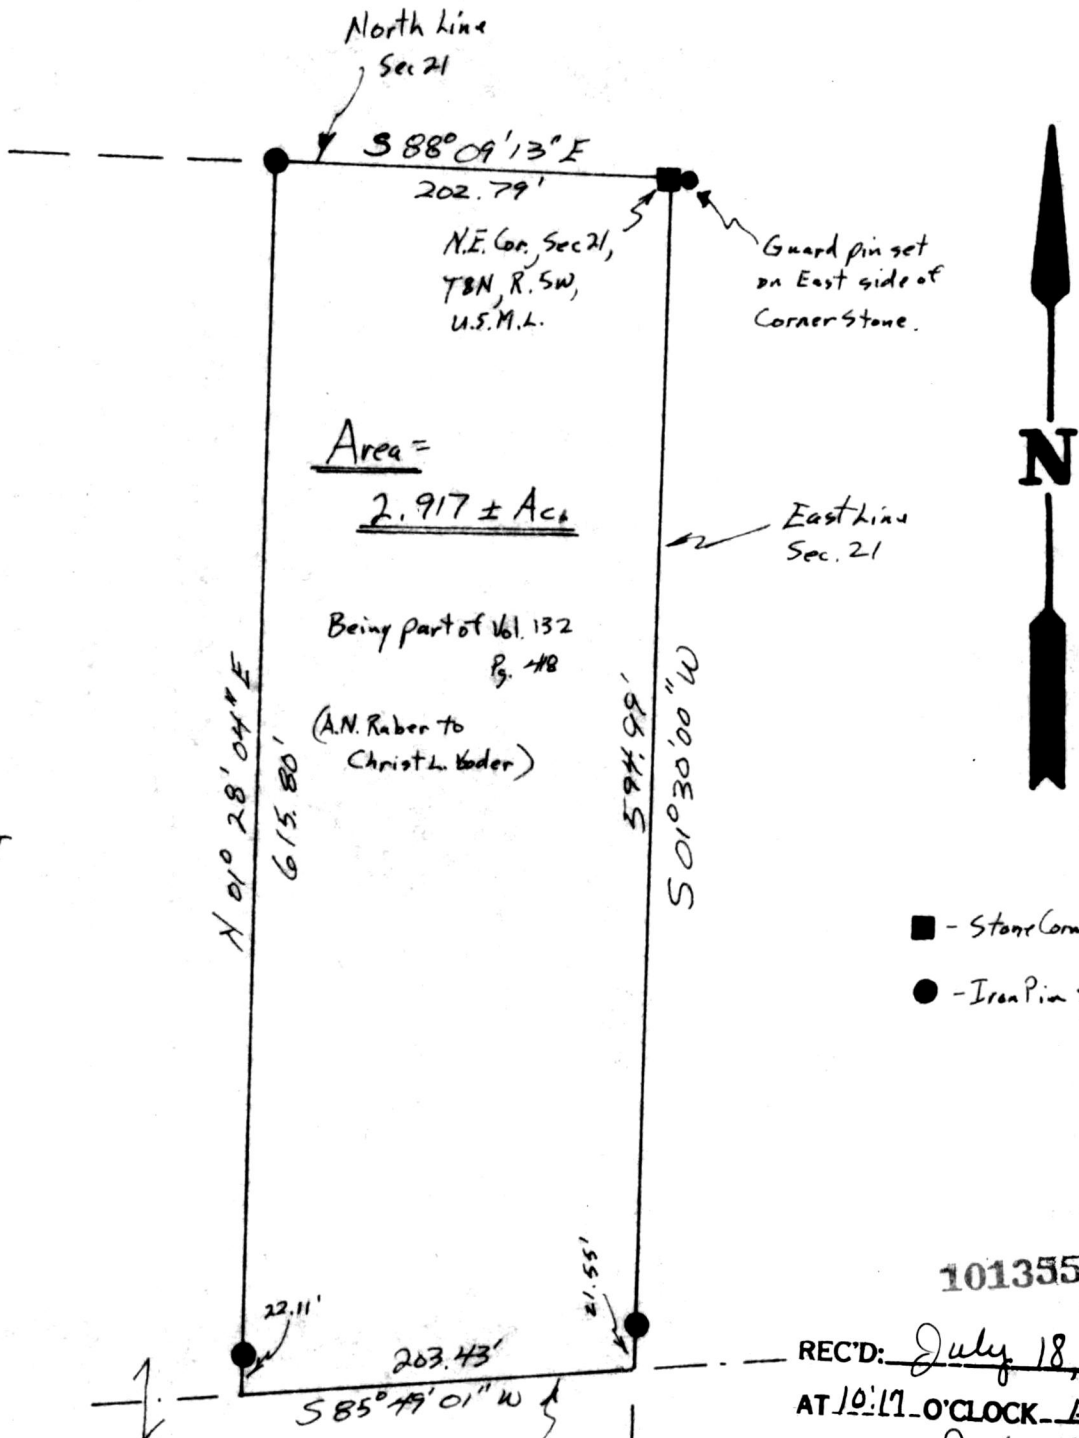 North Line
Sec 21
S 88° 09' 13" E
202.79'
N.E. Cor., Sec 21,
T8N, R. 5W,
U.S.M.L.
Guard pin set
on East side of
Corner Stone.
N
Area =
2.917 ± Ac.
East Line
Sec. 21
Being part of Vol. 132
Pg. 418
(A.N. Raber to
Christ L. Yoder)
N 01° 28' 04" E
615.80'
594.99'
S 01° 30' 00" W
- Stone Corn
- Iron Pin
22.11'
21.55'
203.43'
S 85° 49' 01" W
101355
REC'D: July 18,
AT 10:17 O'CLOCK